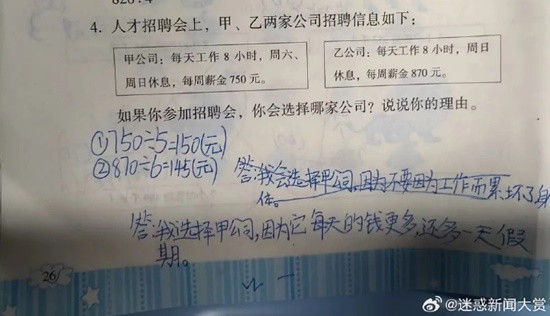 4. 人才招聘会上，甲、乙两家公司招聘信息如下：
甲公司：每天工作 8 小时，周六、
周日休息，每周薪金 750 元。
乙公司：每天工作 8 小时，周日
休息，每周薪金 870 元。
如果你参加招聘会，你会选择哪家公司？说说你的理由。
①750÷5=150(元)
②870÷6=145(元)
答:我会选择甲公司,因为不要因为工作而累坏了身
体。
答:我选择甲公司,因为它每天的钱更多,还多一天假
期。
26
@迷惑新闻大赏